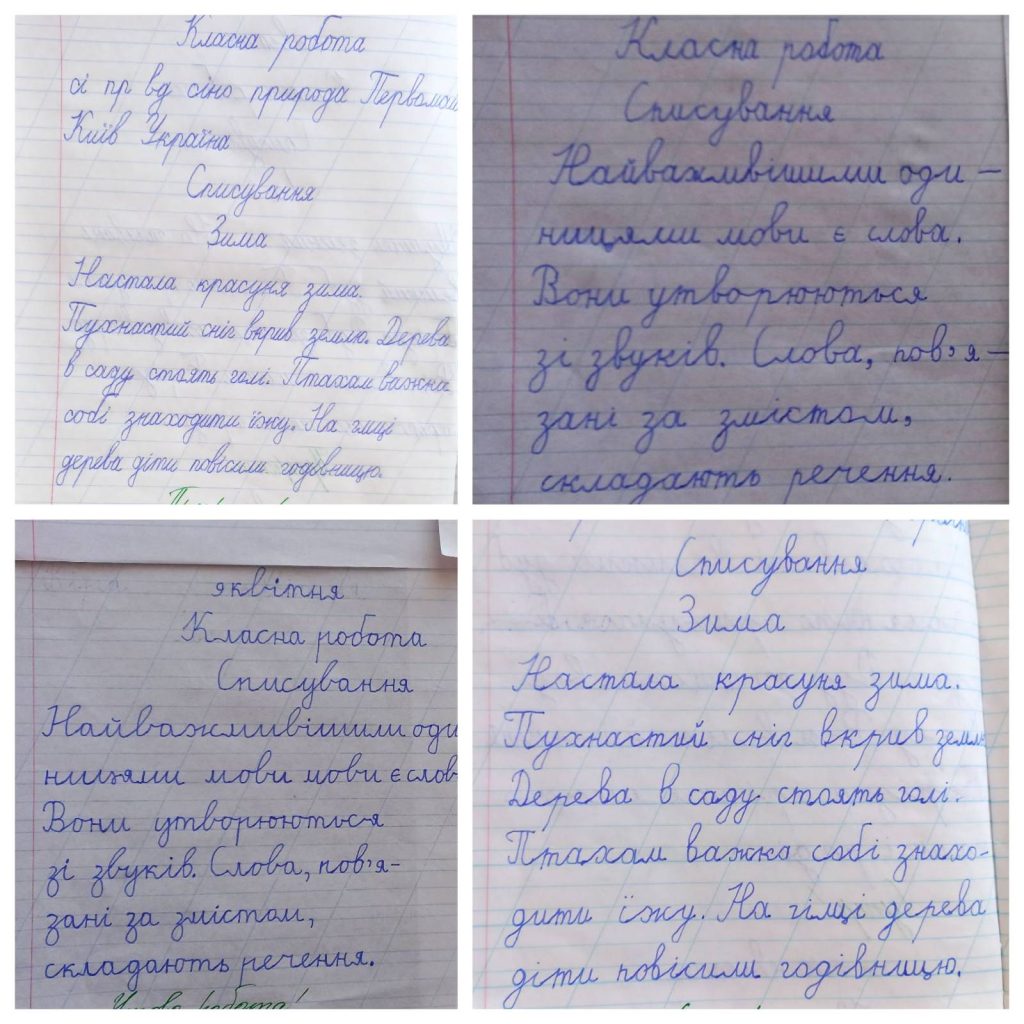 Класна робота
сі пр вд сіно природа Первомай
Київ Україна
Списування
Зима
Настала красуня зима.
Пухнастий сніг вкрив землю. Дерева
в саду стоять голі. Птахам важко
собі знаходити їжу. На гілці
дерева діти повісили годівницю.
Класна робота
Списування
Найважливішими оди-
ницями мови є слова.
Вони утворюються
зі звуків. Слова, пов'я-
зані за змістом,
складають речення.
квітня
Класна робота
Списування
Найважливішими оди
ницями мови мови є слов
Вони утворюються
зі звуків. Слова, пов'я-
зані за змістом,
складають речення.
робота!
Списування
Зима
Настала красуня зима.
Пухнастий сніг вкрив землю
Дерева в саду стоять голі.
Птахам важко собі знахо-
дити їжу. На гілці дерева
діти повісили годівницю.